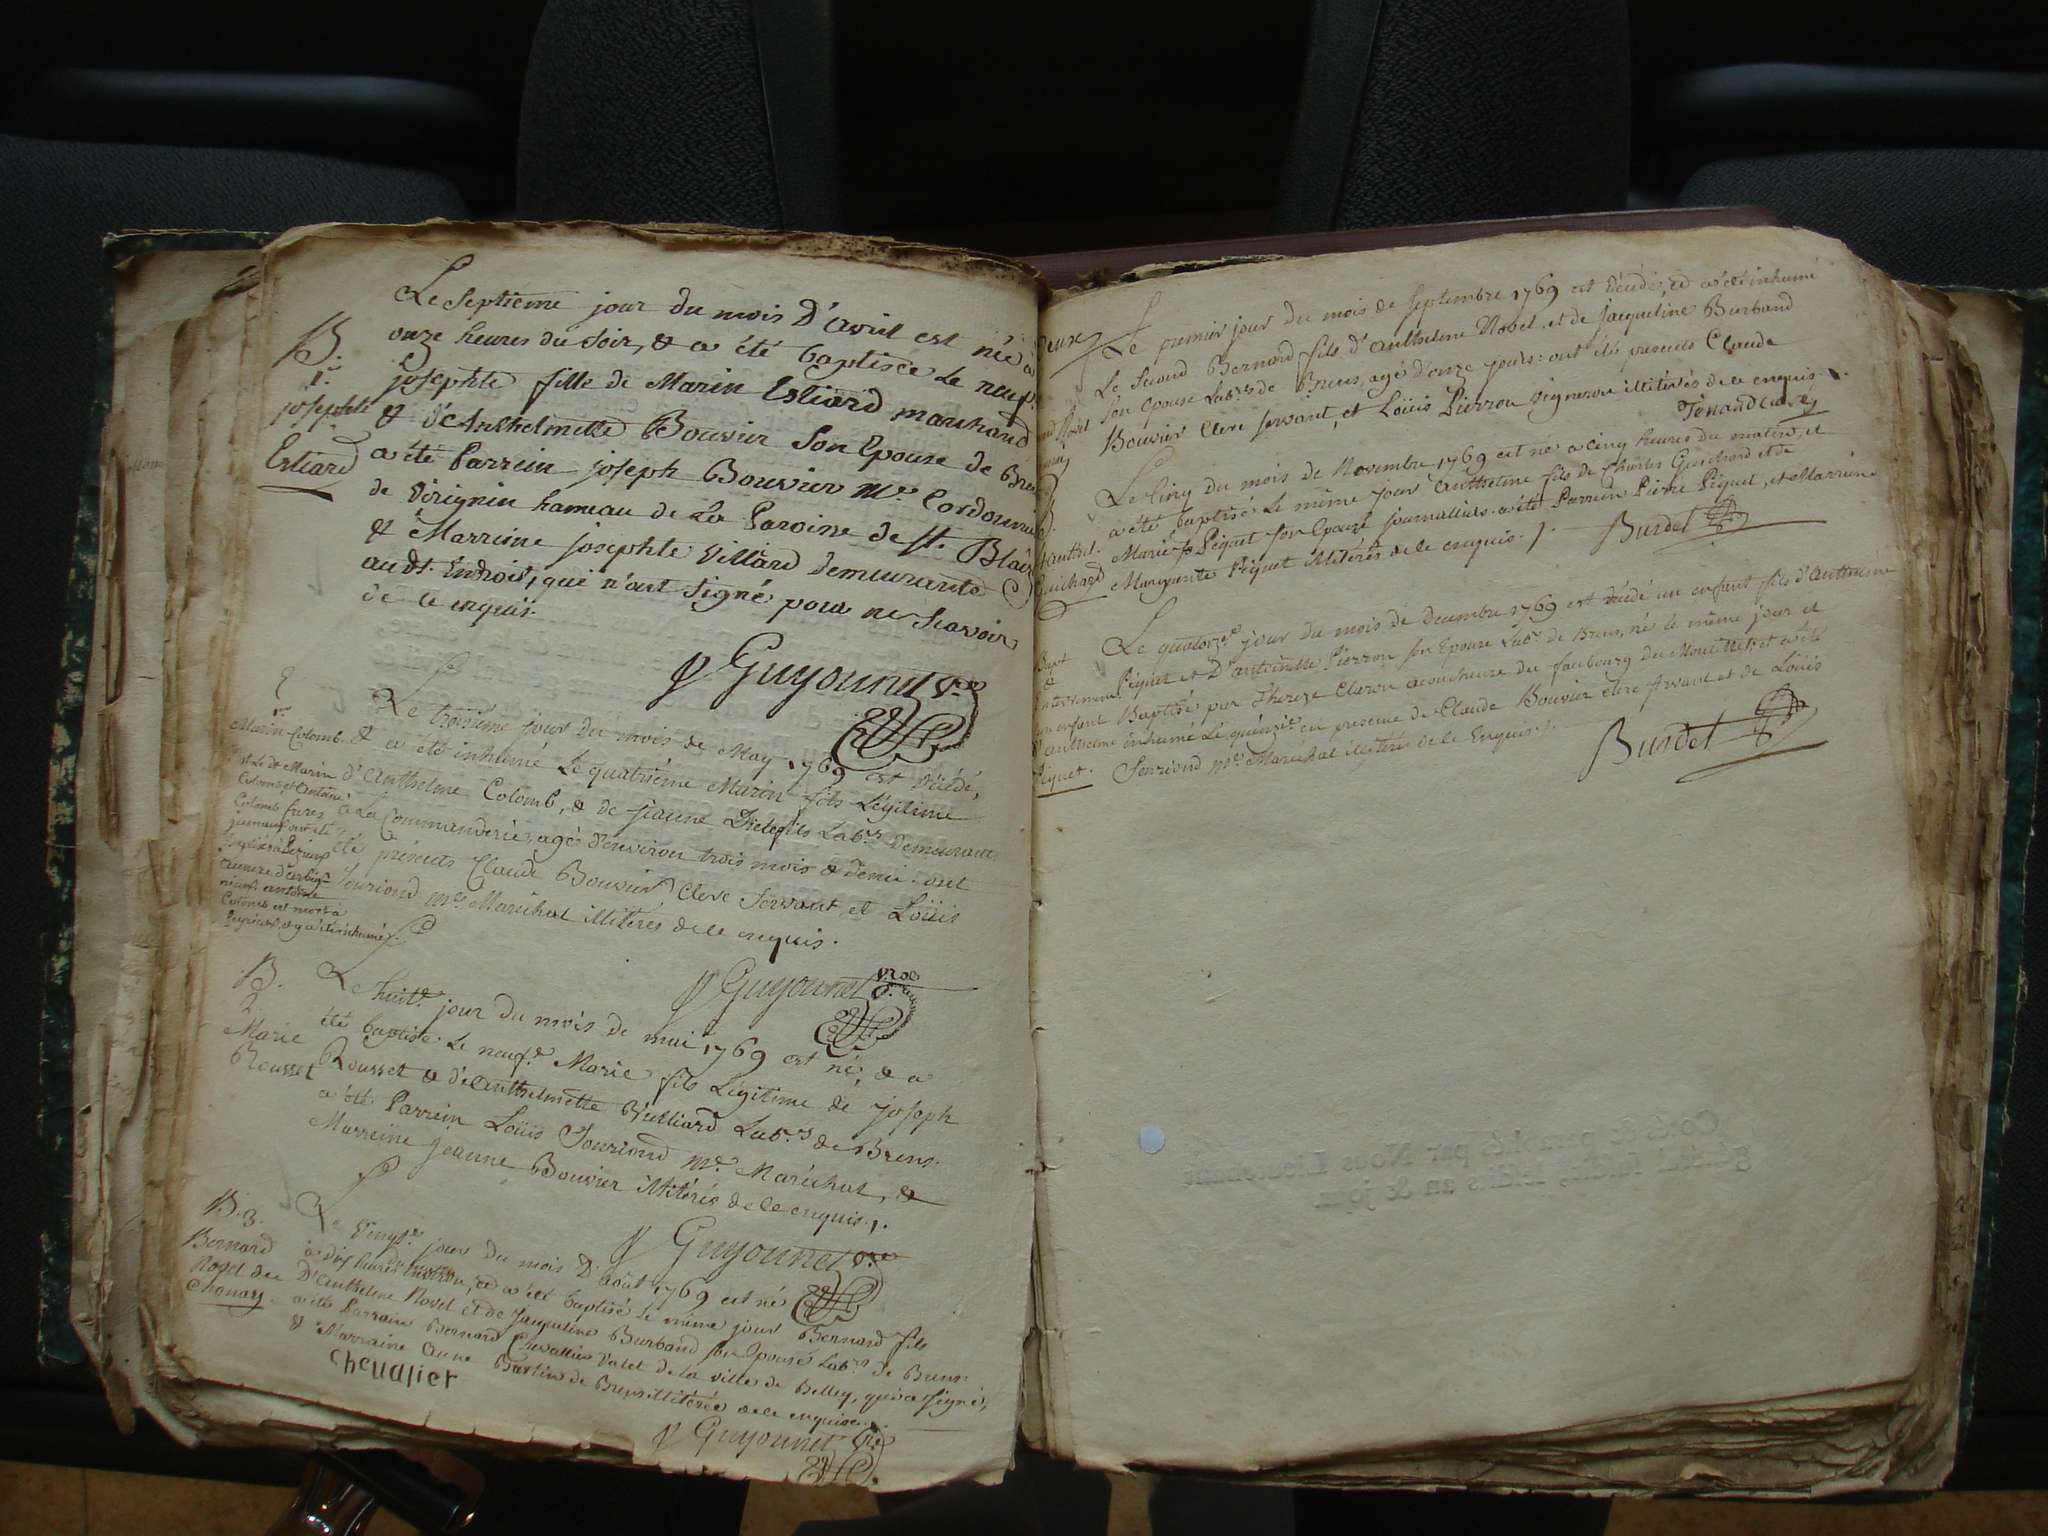 Le Septieme jour du mois D'avril est née a
onze heures du Soir, & a été baptisée Le neuf.e
B.
1.re
josephte
Estiard
josephte fille de Marin Estiard marchand
& d'Anthelmette Bouvier Son Epouse de Brens
a été Parrein joseph Bouvier M.e Cordonnier
de Virignin hameau de La Paroisse de St. Blaise
& Marreine josephte Villard demeurante
audt. Endroit, qui n'ont signé pour ne Scavoir
de ce enquis.
Guyonnet v.re
Marin Colomb.
Le troisième jour du mois de May 1769 est décédé,
& a été inhumé Le quatrième Marin fils Légitime
d'Anthelme Colomb, & de jeanne Lab.rs demeurants
a La Commanderie, agé d'environ trois mois & demi: ont
été présents Claude Bouvier Clerc Servant, et Loüis
Souriond m.e Maréchal illitérés de ce enquis.
et Le dt Marin
Colomb et antoine
Colomb freres
antoine
Colomb est mort à
& y a été inhumé.
Guyonnet v.re
B.
2.
Marie
Rousset
Le huit.e jour du mois de mai 1769 est né, & a
été baptisé Le neuf.e Marie fils Légitime de joseph
Rousset & d'Anthelmette Vulliard Lab.rs de Brens.
a été Parrein Loüis Souriond M.e Maréchal, &
Marreine jeanne Bouvier illitérés de ce enquis.
Guyonnet v.re
B. 3.
Bernard
Novel
Le Vingt.e jour du mois D'août 1769 est né
à dix heures du matin, et a été baptisé le même jour Bernard fils
D'anthelme Novel et de Jacqueline Burband son Epouse Lab.rs de Brens:
a été Parrain Bernard Chevallier Valet de la ville de Belley, qui a signé,
& Marraine anne de Brens illitérée de ce enquise.
cheualier
Guyonnet v.re
Le premier jour du mois de Septembre 1769 est décédé, et a été inhumé
Le Second Bernard fils d'anthelme Novel et de jacqueline Burband
son Epouse Lab.rs de Brens, agé d'onze jours: ont été presents Claude
Bouvier Clerc servant, et Loüis Pierron Vigneron illitérés de ce enquis.
Tenand curé
Le Cinq du mois de Novembre 1769 est né a cinq heures du matin, et
a été baptisé Le même jour Anthelme fils de Charles Guichard et de
Marie Piquet son Epouse journalliers. a été Parrein Pierre Piquet, et Marreine
Marguerite Piquet illitérés de ce enquis.
anthel.
Guichard
Burdet
Le quatorz.e jour du mois de Decembre 1769 est décédé un enfant fils d'anthelme
Piquet et D'antoinette Pierron son Epouse Lab.rs de Brens, né le même jour et
Baptisé par Thereze Claron acoucheuse du faubourg du Moulillet; et a été
inhumé Le quinzie. en presence de Claude Bouvier clerc servant et de Loüis
Souriond m.e Maréchal illitérés de ce Enquis.
Bapt
&
Enterrement
un enfant
d'anthelme
Piquet.
Burdet